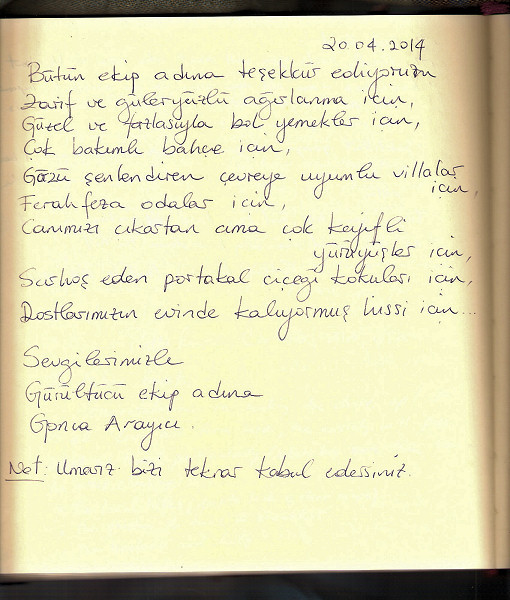 20.04.2014
Bütün ekip adına teşekkür ediyorum
Zarif ve güleryüzlü ağırlanma için,
Güzel ve fazlasıyla bol yemekler için,
Çok bakımlı bahçe için,
Gözü şenlendiren çevreye uyumlu villalar
için,
Ferahfeza odalar için,
Canımızı çıkartan ama çok keyifli
yürüyüşler için,
Sarhoş eden portakal çiçeği kokuları için,
Dostlarımızın evinde kalıyormuş hissi için...
Sevgilerimizle
Gürültücü ekip adına
Gonca Arayıcı.
Not: Umarız bizi tekrar kabul edersiniz.